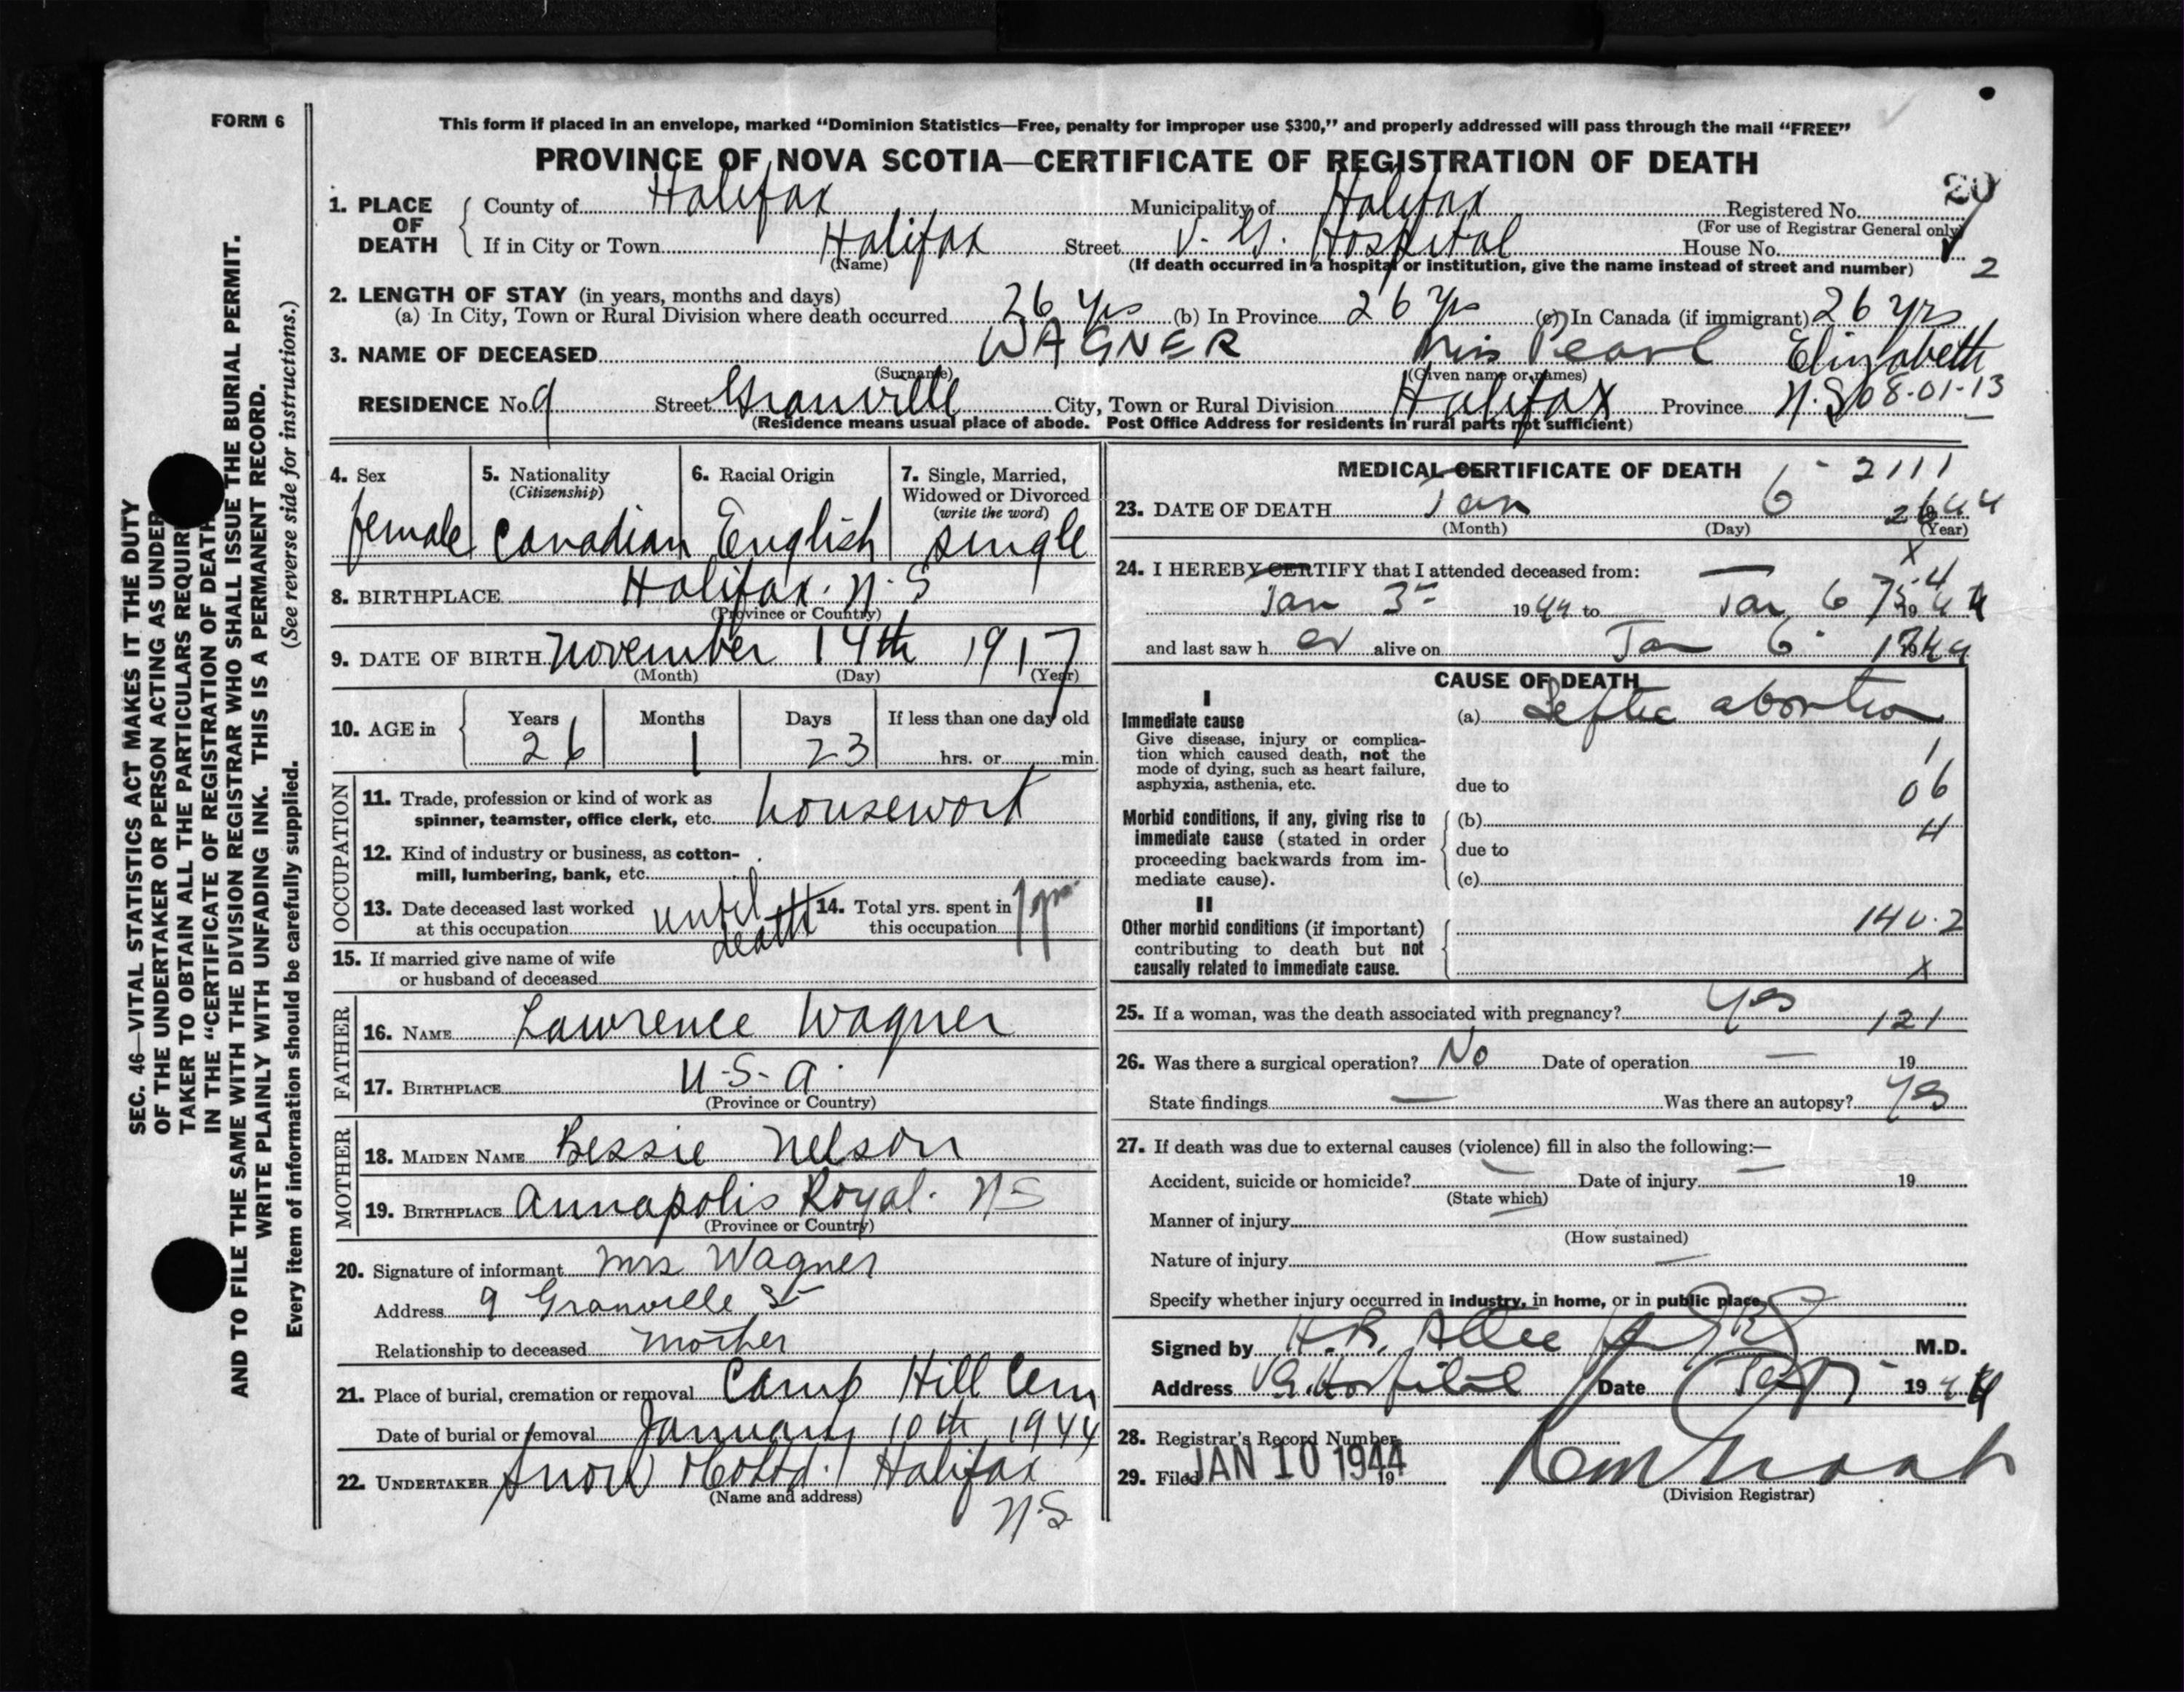 FORM 6
This form if placed in an envelope, marked “Dominion Statistics—Free, penalty for improper use $300,” and properly addressed will pass through the mail “FREE”
PROVINCE OF NOVA SCOTIA—CERTIFICATE OF REGISTRATION OF DEATH
20
1. PLACE OF DEATH
County of Halifax Municipality of Halifax Registered No.
(For use of Registrar General only)
If in City or Town Halifax Street V. G. Hospital House No.
(Name) (If death occurred in a hospital or institution, give the name instead of street and number) 2
2. LENGTH OF STAY (in years, months and days)
(a) In City, Town or Rural Division where death occurred 26 yrs (b) In Province 26 yrs (c) In Canada (if immigrant) 26 yrs
3. NAME OF DECEASED WAGNER Miss Pearl Elizabeth
(Surname) (Given name or names)
RESIDENCE No. 9 Street Granville City, Town or Rural Division Halifax Province N.S 08-01-13
(Residence means usual place of abode. Post Office Address for residents in rural parts not sufficient)
4. Sex
female
5. Nationality
(Citizenship)
Canadian
6. Racial Origin
English
7. Single, Married,
Widowed or Divorced
(write the word)
single
8. BIRTHPLACE Halifax. N.S
(Province or Country)
9. DATE OF BIRTH November 14th 1917
(Month) (Day) (Year)
10. AGE in
Years Months Days If less than one day old
26 1 23 hrs. or min.
OCCUPATION
11. Trade, profession or kind of work as
spinner, teamster, office clerk, etc. housework
12. Kind of industry or business, as cotton-
mill, lumbering, bank, etc.
13. Date deceased last worked
at this occupation until death
14. Total yrs. spent in
this occupation
15. If married give name of wife
or husband of deceased
FATHER
16. NAME Lawrence Wagner
17. BIRTHPLACE U.S.A.
(Province or Country)
MOTHER
18. MAIDEN NAME Bessie Nelson
19. BIRTHPLACE Annapolis Royal. NS
(Province or Country)
20. Signature of informant Mrs Wagner
Address 9 Granville St
Relationship to deceased Mother
21. Place of burial, cremation or removal Camp Hill Cem
Date of burial or removal January 10th 1944
22. UNDERTAKER Snow Co Ltd. Halifax
(Name and address)
N.S
MEDICAL CERTIFICATE OF DEATH 2111
23. DATE OF DEATH Jan 6 44
(Month) (Day) (Year)
24. I HEREBY CERTIFY that I attended deceased from:
Jan 3 1944 to Jan 6 1944
and last saw h er alive on Jan 6 1944
CAUSE OF DEATH
I
Immediate cause
Give disease, injury or complica-
tion which caused death, not the
mode of dying, such as heart failure,
asphyxia, asthenia, etc.
(a) Septic abortion
1
due to
06
Morbid conditions, if any, giving rise to
immediate cause (stated in order
proceeding backwards from im-
mediate cause).
(b) 4
due to
(c)
II
Other morbid conditions (if important)
contributing to death but not
causally related to immediate cause.
140.2
x
25. If a woman, was the death associated with pregnancy? Yes 121
26. Was there a surgical operation? No Date of operation — 19
State findings — Was there an autopsy? Yes
27. If death was due to external causes (violence) fill in also the following:—
Accident, suicide or homicide? — Date of injury — 19
(State which)
Manner of injury —
(How sustained)
Nature of injury —
Specify whether injury occurred in industry, in home, or in public place
Signed by H.B. Atlee M.D.
Address V G. Hospital Date 1944
28. Registrar's Record Number
29. Filed JAN 10 1944 19
(Division Registrar)
SEC. 46—VITAL STATISTICS ACT MAKES IT THE DUTY
OF THE UNDERTAKER OR PERSON ACTING AS UNDER
TAKER TO OBTAIN ALL THE PARTICULARS REQUIR
IN THE “CERTIFICATE OF REGISTRATION OF DEATH
AND TO FILE THE SAME WITH THE DIVISION REGISTRAR WHO SHALL ISSUE THE BURIAL PERMIT.
WRITE PLAINLY WITH UNFADING INK. THIS IS A PERMANENT RECORD.
Every item of information should be carefully supplied. (See reverse side for instructions.)